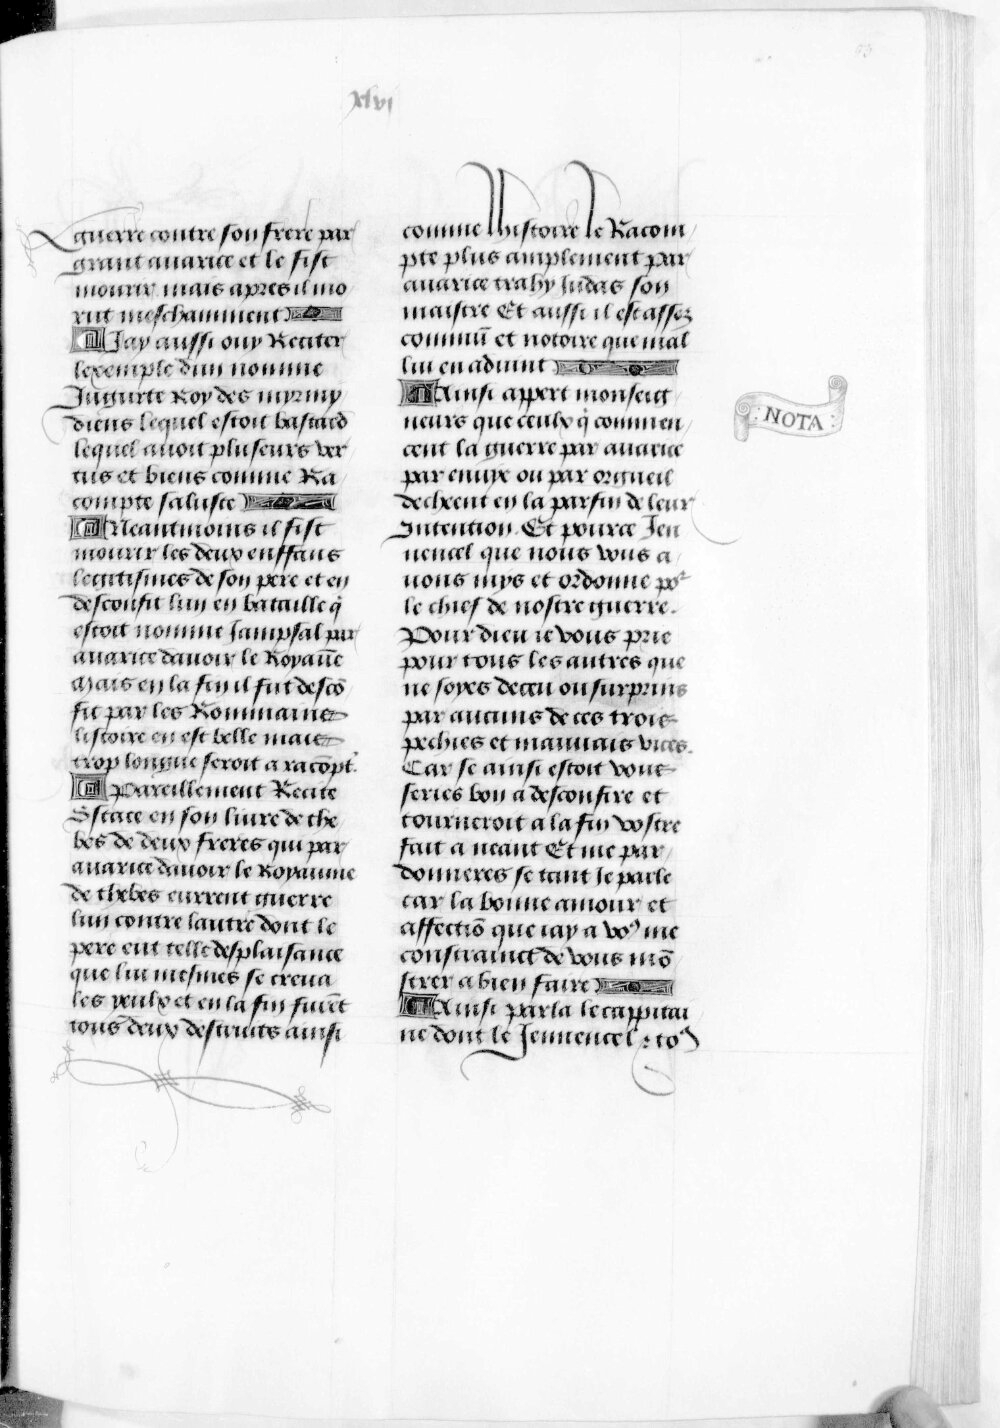 93
xlvi
guerre contre son frere par
grant auarice et le fist
mourir mais apres il mo
rut meschamment
Jay aussi ouy Reciter
lexemple dun nomme
Jugurte Roy des myrmy
diens lequel estoit bastard
lequel auoit pluseurs ver
tus et biens comme Ra
compte saluste
Neantmoins il fist
mourir les deux enffans
legitismes de son pere et en
desconfit lun en bataille q̄
estoit nomme Jampsal par
auarice dauoir le Royaūe
Mais en la fin il fut descō
fit par les Rommains
listoire en est belle mais
trop longue seroit a racōpt'
Pareillement Recite
Sstace en son liure de the
bes de deux freres qui par
auarice dauoir le Royaume
de thebes eurrent guerre
lun contre lautre dont le
pere eut telle desplaisance
que lui mesmes se creua
les yeulx et en la fin furēt
tous deux destruits ainsi
comme lhistoire le Racom
pte plus amplement par
auarice trahy Judas son
maistre Et aussi il est assez
commū et notoire que mal
lui en aduint
Ainsi appert monseig
neurs que ceulx q̄ commen
cent la guerre par auarice
par enuye ou par orgueil
decheent en la parfin de leur
Intention. Et pource Jen
nencel que nous vous a
uons mys et ordonne po
le chief de nostre guerre.
Pour dieu ie vous prie
pour tous les autres que
ne soyes deceu ou surprins
par aucuns de ces trois
pechies et mauuais vices.
Car se ainsi estoit vous
series bon a desconfire et
tourneroit a la fin vostre
fait a neant Et me par
donneres se tant Je parle
car la bonne amour et
affectiō que iay a vo9 me
constrainct de vous mō
strer a bien faire
Ainsi parla le cappitai
ne dont le Jennencel : to9
: NOTA :